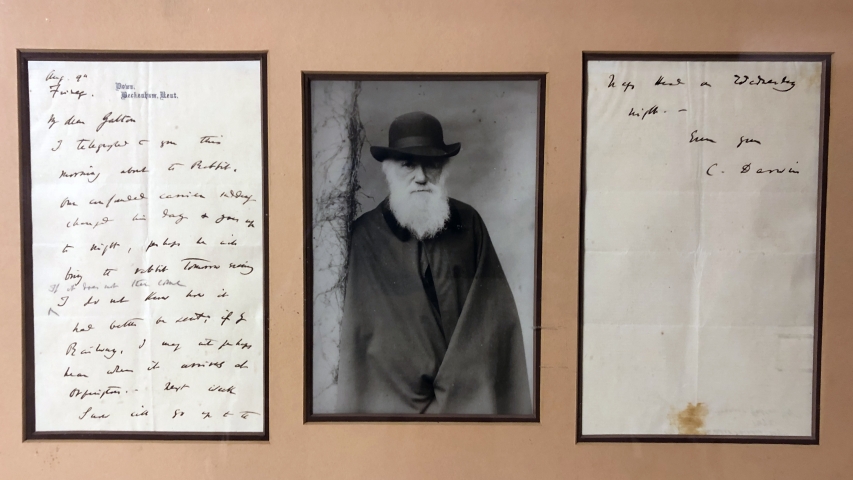 Aug. 9th
Friday.
Down,
Beckenham, Kent.
My dear Galton
I telegraphed to you this
morning about the Rabbit.
Our confounded carrier
changed his day & goes up
to night, perhaps he will
bring the rabbit tomorrow evening
If it does not then come
I do not know how it
had better be sent; if by
Railway, I may not perhaps
hear when it arrives at
Orpington. - Next week
will go up to the
on Wednesday
night. -
Ever yours
C. Darwin